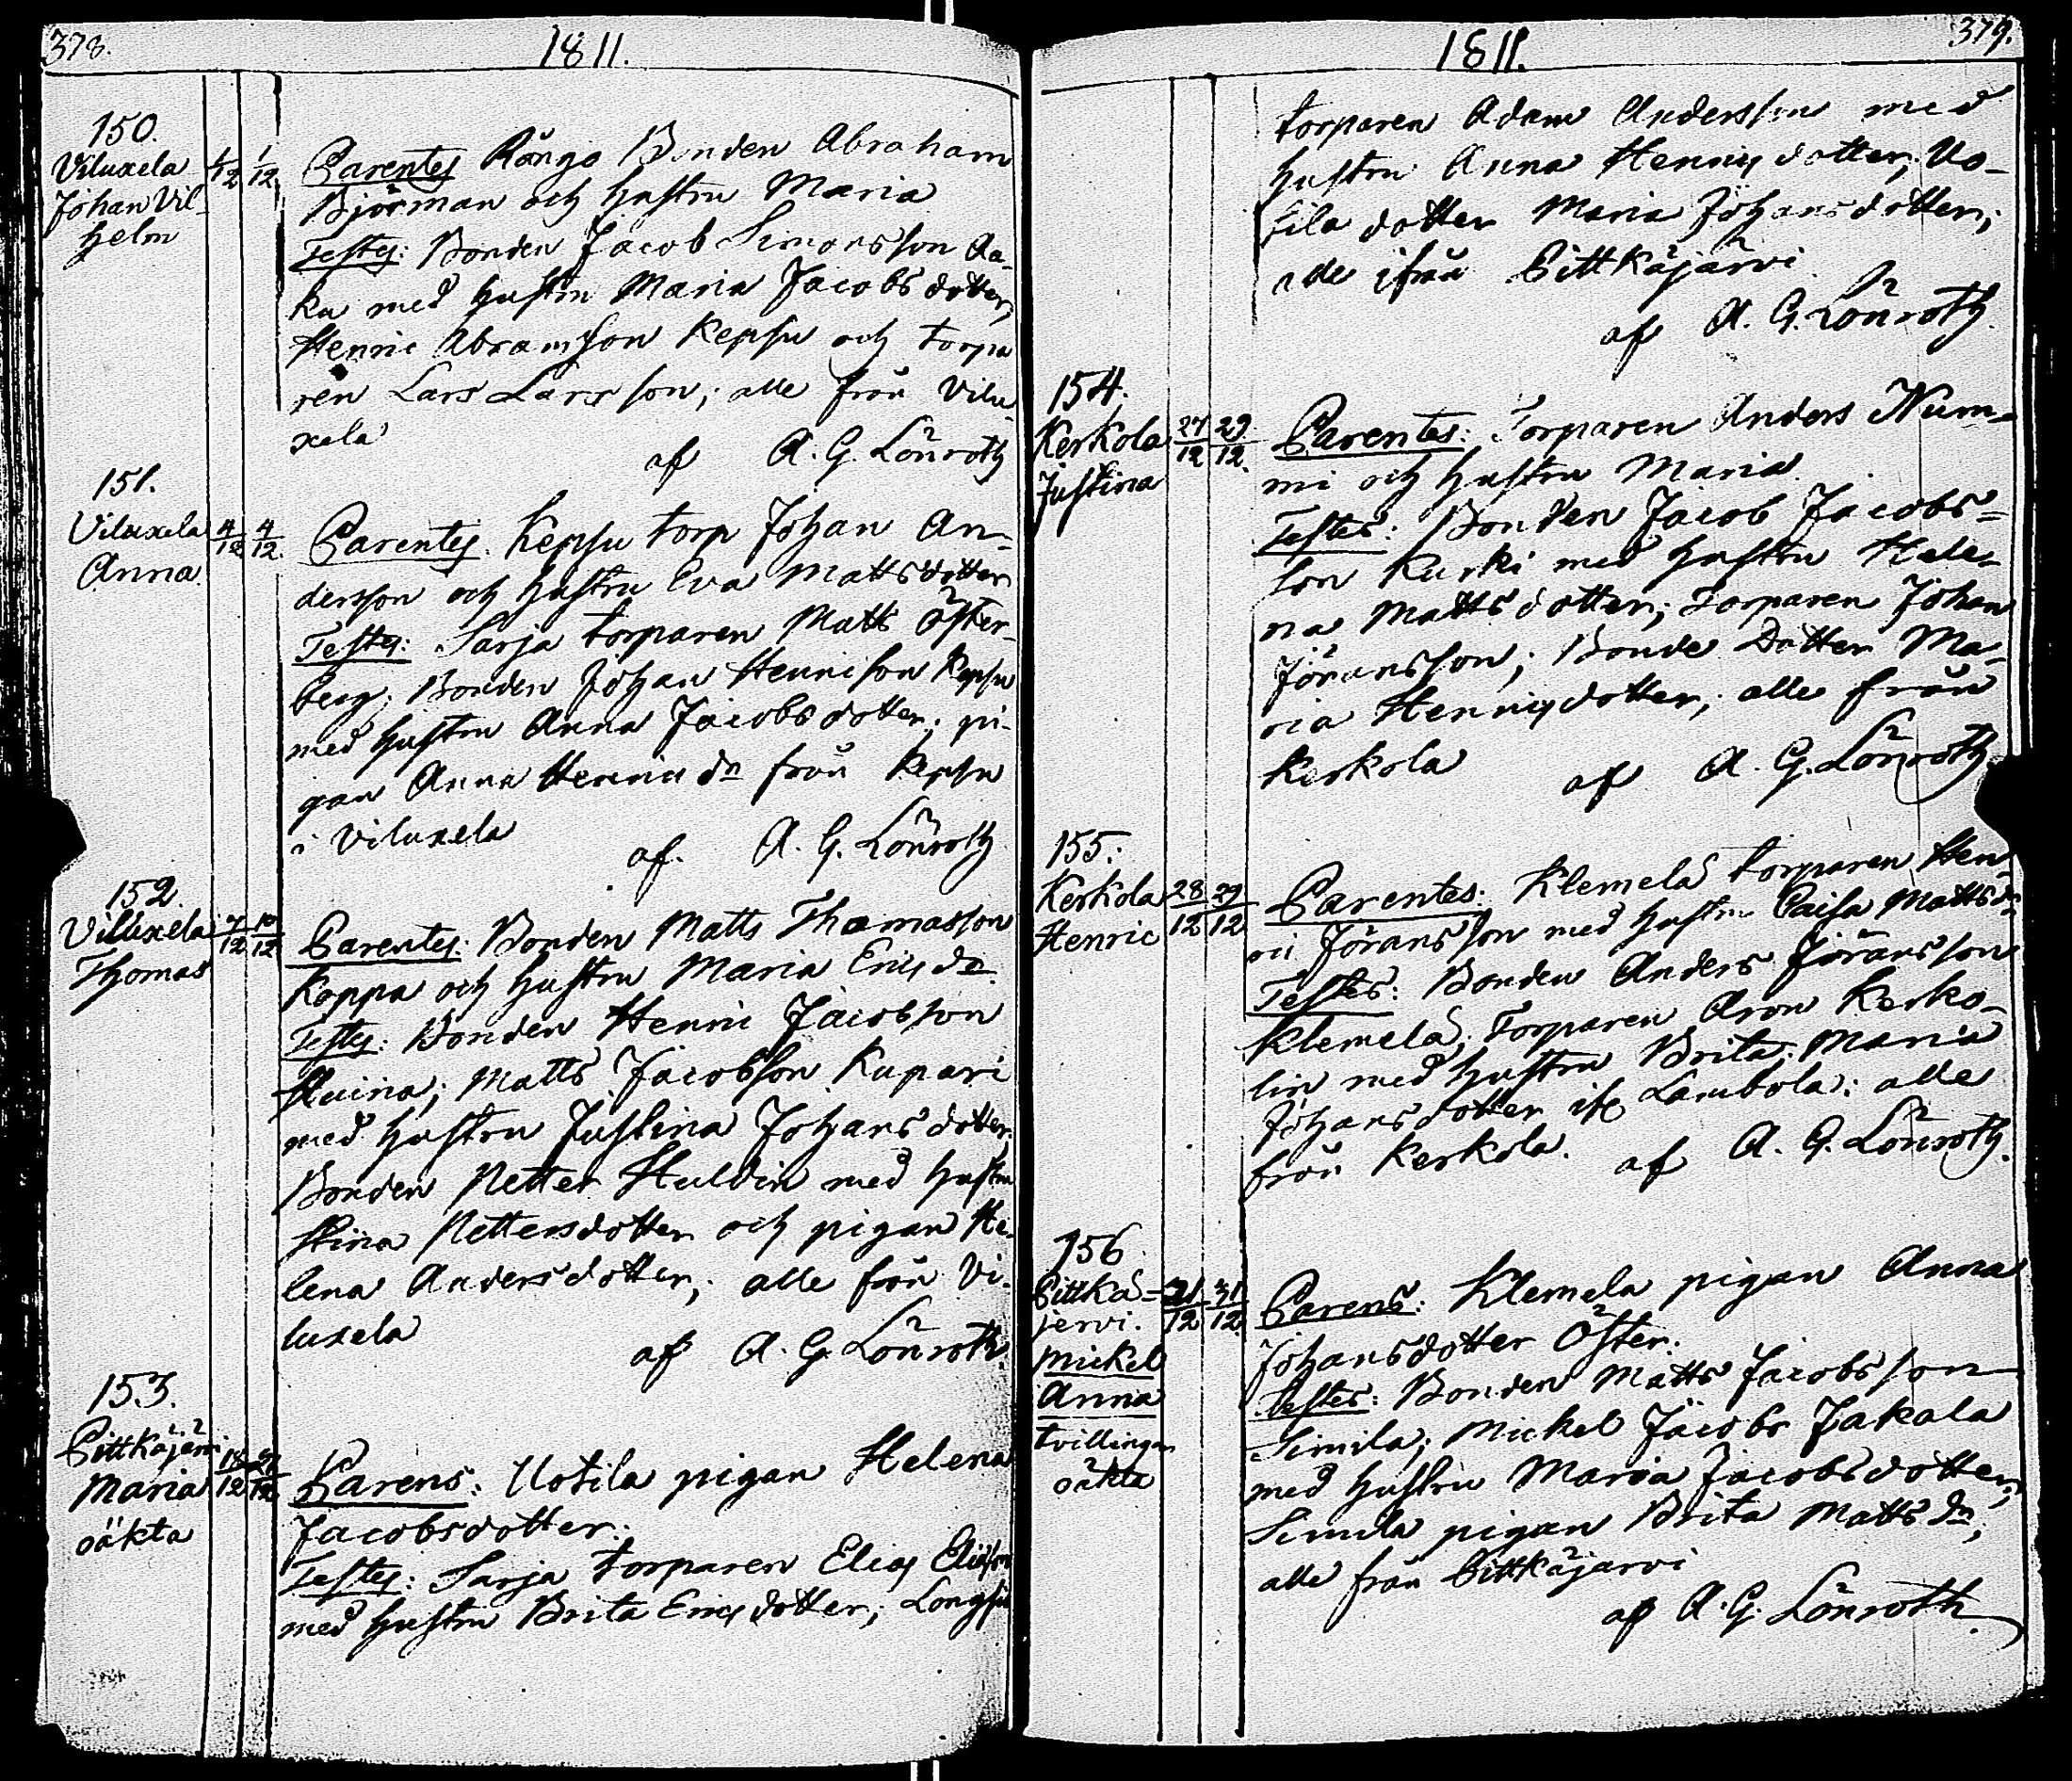 378.
1811.
150.
Viluxela
Johan Vil-
helm
1/12 1/12
Parentes Rångo Bonden Abraham
Björman och hustru Maria
Testes: Bonden Jacob Simonsson Aa-
ku med hustru Maria Jacobsdotter,
Henric Abramsson Kepsu och torpa
ren Lars Larsson; alle från Vilu
xela
af A. G. Lönroth
151.
Viluxela
Anna.
4/12 4/12.
Parentes. Kepsu torp Johan An-
dersson och hustru Eva Mattsdotter
Testes: Sarja torparen Matts Öster-
berg; Bonden Johan Henricson Kepsu
med hustru Anna Jacobsdotter; pi-
gan Anna Henricsdr från Kepsu
i Viluxela
af. A. G. Lönroth
152.
Viluxela
Thomas
7/12 10/12
Parentes: Bonden Matts Thomasson
Koppa och hustru Maria Ericsdr
Testes: Bonden Henric Jacobsson
Matts Jacobsson Kupari
med hustru Justina Johansdotter;
Bonden Petter Huldin med hustru
Stina Pettersdotter och pigan He-
lena Andersdotter; alle från Vi-
luxela
af A. G. Lönroth.
153.
Pittkäjärvi
Maria
oäkta
18/12
Parens: Uotila pigan Helena
Jacobsdotter.
Testes: Sarja torparen Elias Eliasson
med hustru Brita Ericsdotter; Longsil
379.
1811.
torparen Adam Andersson med
hustru Anna Henricsdotter; Uo-
tila dotter Maria Johansdotter;
alle ifrån Pittkäjärvi
af A. G. Lönroth.
154.
Kerkola
Justina
27/12 29/12.
Parentes: Torparen Anders Num-
mi och hustru Maria.
Testes: Bonden Jacob Jacobs=
son Kurki med hustru Hele-
na Mattsdotter; Torparen Johan
Jöransson; Bonde Dotter Ma-
ria Henricsdotter; alle från
Kerkola
af A. G. Lönroth
155.
Kerkola
Henric
28/12 29/12
Parentes: Klemelä torparen Hen
ric Jöransson med hustru Caisa Mattsdr
Testes: Bonden Anders Jöransson
Klemelä; Torparen Aron Kerko-
lin med hustru Brita; Maria
Johansdotter Lambola: alle
från Kerkola.
af A. G. Lönroth.
156
Pittkä=
jervi.
Mickel
Anna
tvillingar
oäkta
31/12 31/12
Parens: Klemela pigan Anna
Johansdotter Öster.
Testes: Bonden Matts Jacobsson
Simila; Mickel Jacobs Jakala
med hustru Maria Jacobsdotter;
Simila pigan Brita Mattsdr;
alle från Pittkäjärvi
af A. G. Lönroth.